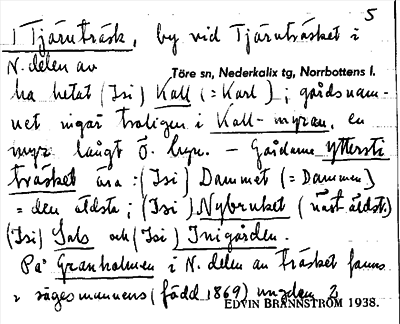 5
1 Tjärnträsk, by vid Tjärnträsket i
N. delen av
Töre sn, Nederkalix tg, Norrbottens l.
ha hetat (Isi) Kall (= Karl); gårdsnam-
net ingår troligen i Kall-myran, en
myr långt Ö. byn. – Gårdarna yttersti
träsket äro: (Isi) Dammet (= Dammen)
= den äldsta; (Isi) Nybruket (näst äldst.)
(Isi) Sals och (Isi) Inigården.
På Granholmen i N. delen av träsket fanns
i sagesmannens (född 1869) ungdom 2
EDVIN BRÄNNSTRÖM 1938.